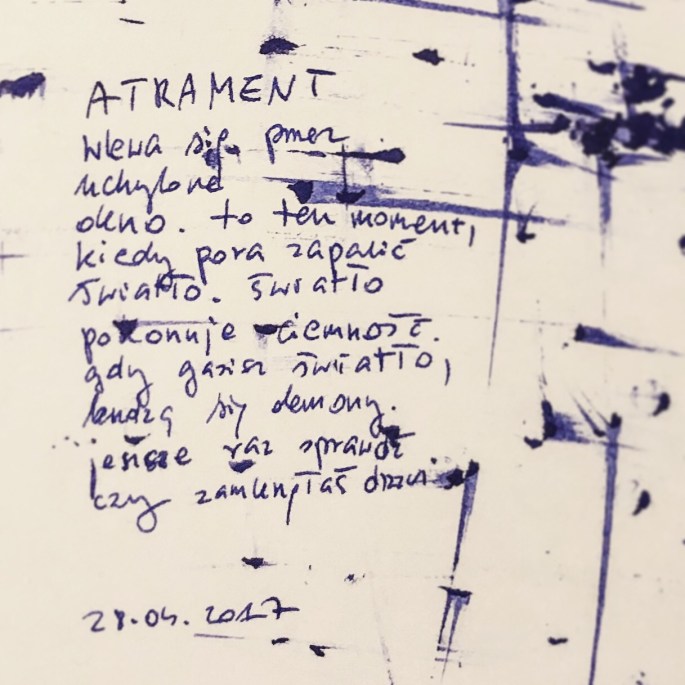 ATRAMENT
wlewa się przez
uchylone
okno. to ten moment,
kiedy pora zapalić
światło. światło
pokonuje ciemność.
gdy gasisz światło,
budzą się demony.
jeszcze raz sprawdź
czy zamknęłaś drzwi.
28.04.2017